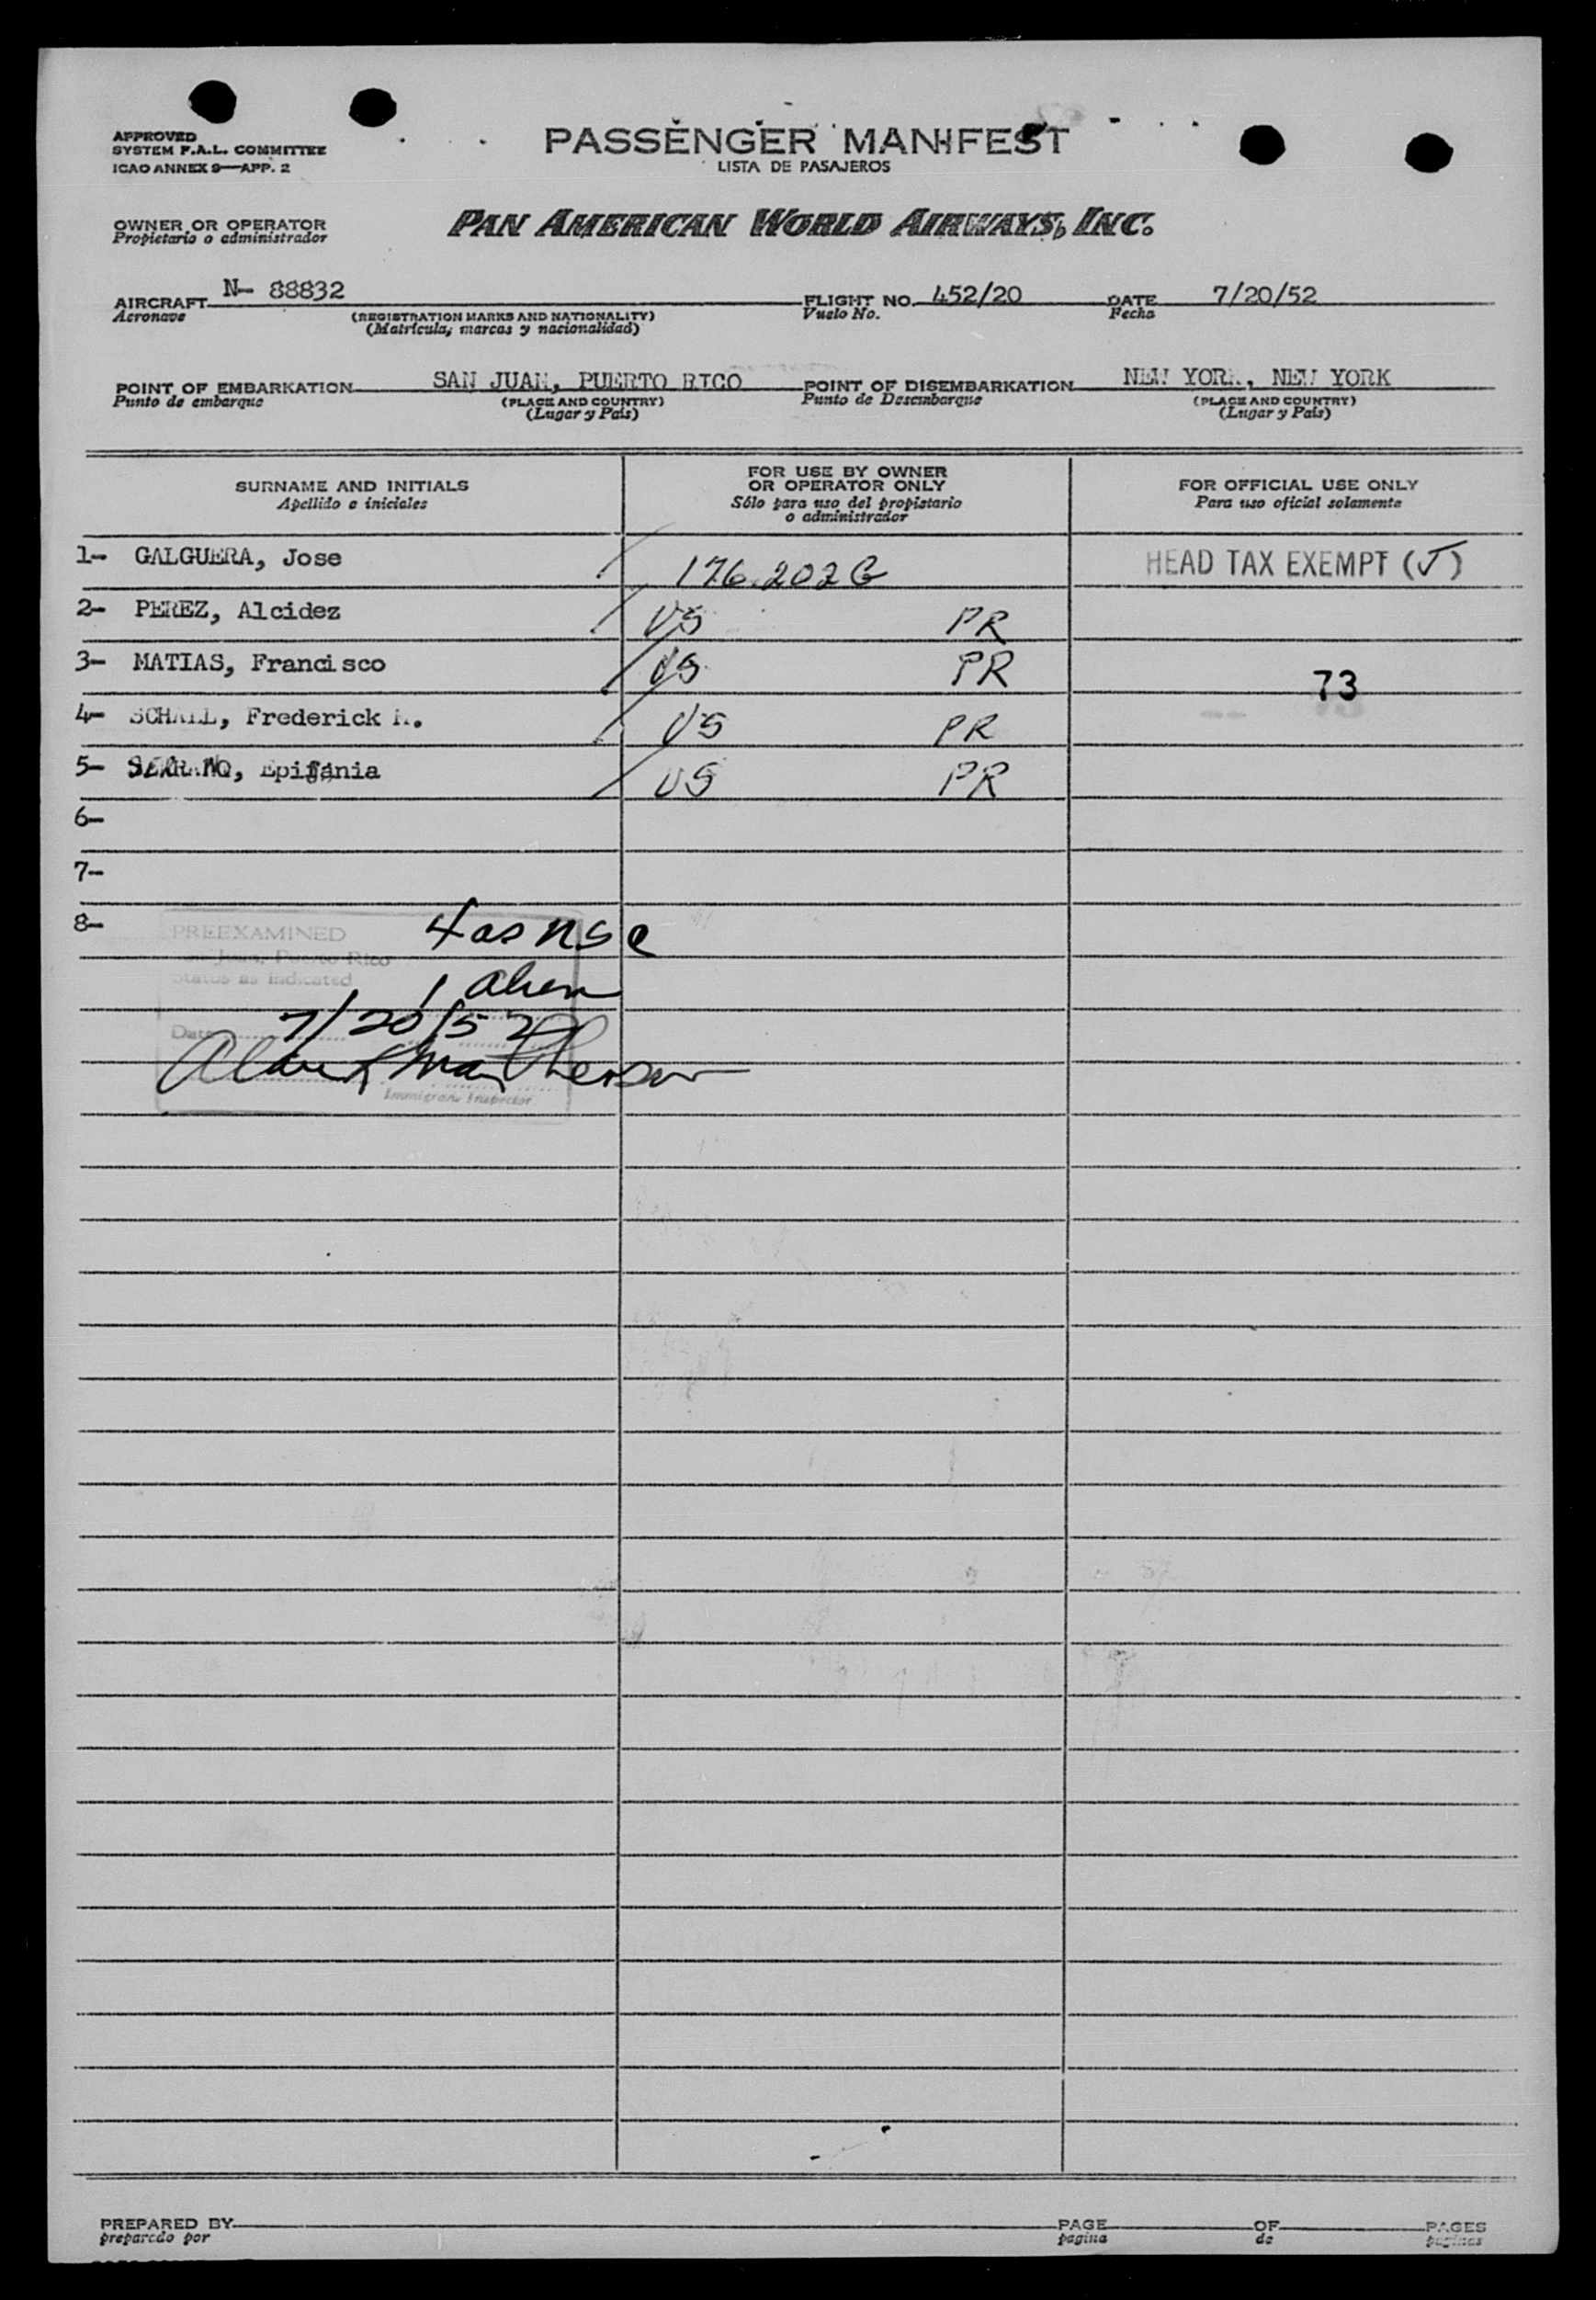 APPROVED
SYSTEM F.A.L. COMMITTEE
ICAO ANNEX 9—APP. 2
PASSENGER MANIFEST
LISTA DE PASAJEROS
OWNER OR OPERATOR
Propietario o administrador
PAN AMERICAN WORLD AIRWAYS, INC.
AIRCRAFT N- 88832 FLIGHT NO. 452/20 DATE 7/20/52
Aeronave (REGISTRATION MARKS AND NATIONALITY) Vuelo No. Fecha
(Matrícula, marcas y nacionalidad)
POINT OF EMBARKATION SAN JUAN, PUERTO RICO POINT OF DISEMBARKATION NEW YORK, NEW YORK
Punto de embarque (PLACE AND COUNTRY) Punto de Desembarque (PLACE AND COUNTRY)
(Lugar y País) (Lugar y País)
SURNAME AND INITIALS
Apellido e iniciales
FOR USE BY OWNER
OR OPERATOR ONLY
Sólo para uso del propietario
o administrador
FOR OFFICIAL USE ONLY
Para uso oficial solamente
1- GALGUERA, Jose 176.202 G HEAD TAX EXEMPT (J)
2- PEREZ, Alcidez US PR
3- MATIAS, Francisco US PR
73
4- SCHALL, Frederick US PR
5- SERRANO, Epifania US PR
6-
7-
8-
PREEXAMINED 4 as nsc
San Juan, Puerto Rico
Status as indicated 1 alien
Date 7/20/52
Immigrant Inspector
PREPARED BY PAGE OF PAGES
preparado por pagina de paginas